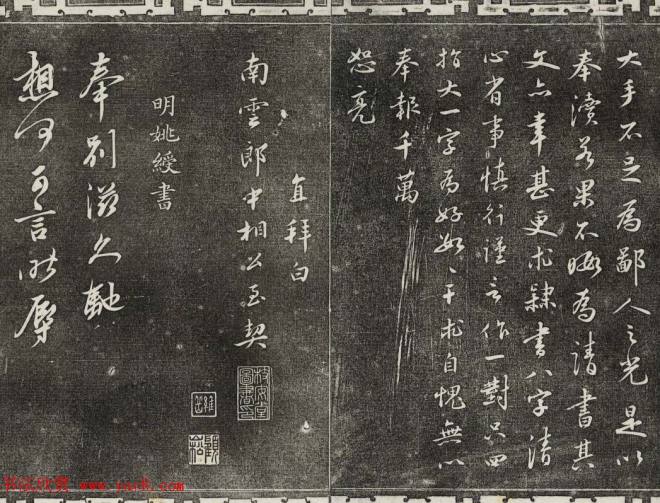 大手不足為鄙人之光是以
奉瀆若果不晦為請書其
文亦幸甚更求隸書八字清
心省事慎行謹言作一對只四
指大一字為好數〻干求自愧無以
奉報千萬
恕亮
直拜白
南雲郎中相公至契
明姚綬書
奉別滋久馳
想何可言昨辱
www.yac8.com